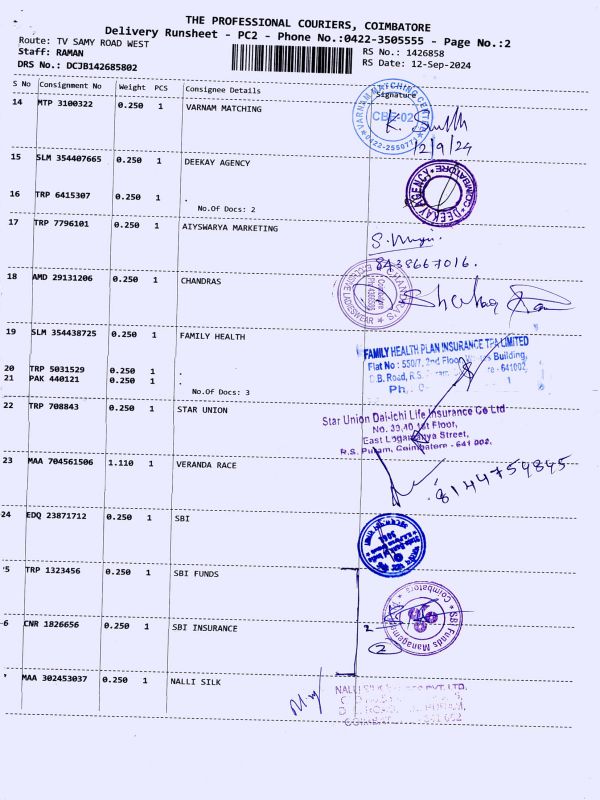 THE PROFESSIONAL COURIERS, COIMBATORE
Delivery Runsheet - PC2 - Phone No.:0422-3505555 - Page No.:2
Route: TV SAMY ROAD WEST
Staff: RAMAN
DRS No.: DCJB142685802
RS No.: 1426858
RS Date: 12-Sep-2024
S No Consignment No Weight PCS Consignee Details Signature
14 MTP 3100322 0.250 1 VARNAM MATCHING
VARNAM MATCHING CENTRE
CBE-02
0422-2550771
12/9/24
15 SLM 354407665 0.250 1 DEEKAY AGENCY
DEEKAY AGENCY COIMBATORE
16 TRP 6415307 0.250 1 .
No.Of Docs: 2
17 TRP 7796101 0.250 1 AIYSWARYA MARKETING
8438667016.
18 AMD 29131206 0.250 1 CHANDRAS
19 SLM 354438725 0.250 1 FAMILY HEALTH
FAMILY HEALTH PLAN INSURANCE TPA LIMITED
Flat No : 550/7, 2nd Floor, Building,
D.B. Road, R.S. - 641002,
Ph
20 TRP 5031529 0.250 1 .
21 PAK 440121 0.250 1 .
No.Of Docs: 3
22 TRP 708843 0.250 1 STAR UNION
Star Union Dai-ichi Life Insurance Co Ltd
No. 39,40 1st Floor,
East Street,
R.S. Puram, Coimbatore - 641 002.
23 MAA 704561506 1.110 1 VERANDA RACE
8144754845
24 EDQ 23871712 0.250 1 SBI
5 TRP 1323456 0.250 1 SBI FUNDS
Coimbatore
SBI Funds Management
6 CNR 1826656 0.250 1 SBI INSURANCE
2
2
MAA 302453037 0.250 1 NALLI SILK
NALLI PVT. LTD.